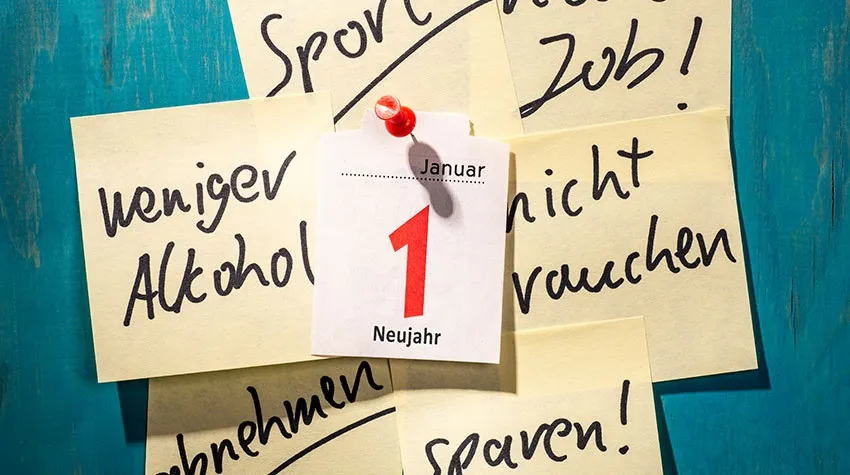 Sport
Job!
weniger
Alkohol
Januar
1
Neujahr
nicht
rauchen
abnehmen
sparen!